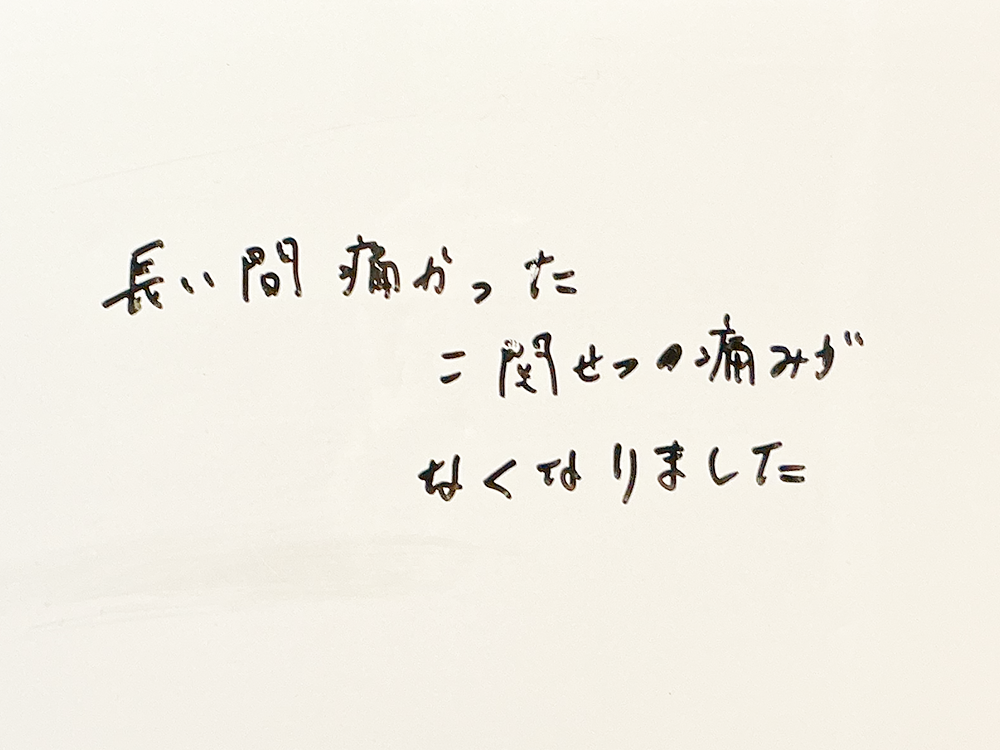 長い間痛かった
こ関せつの痛みが
なくなりました